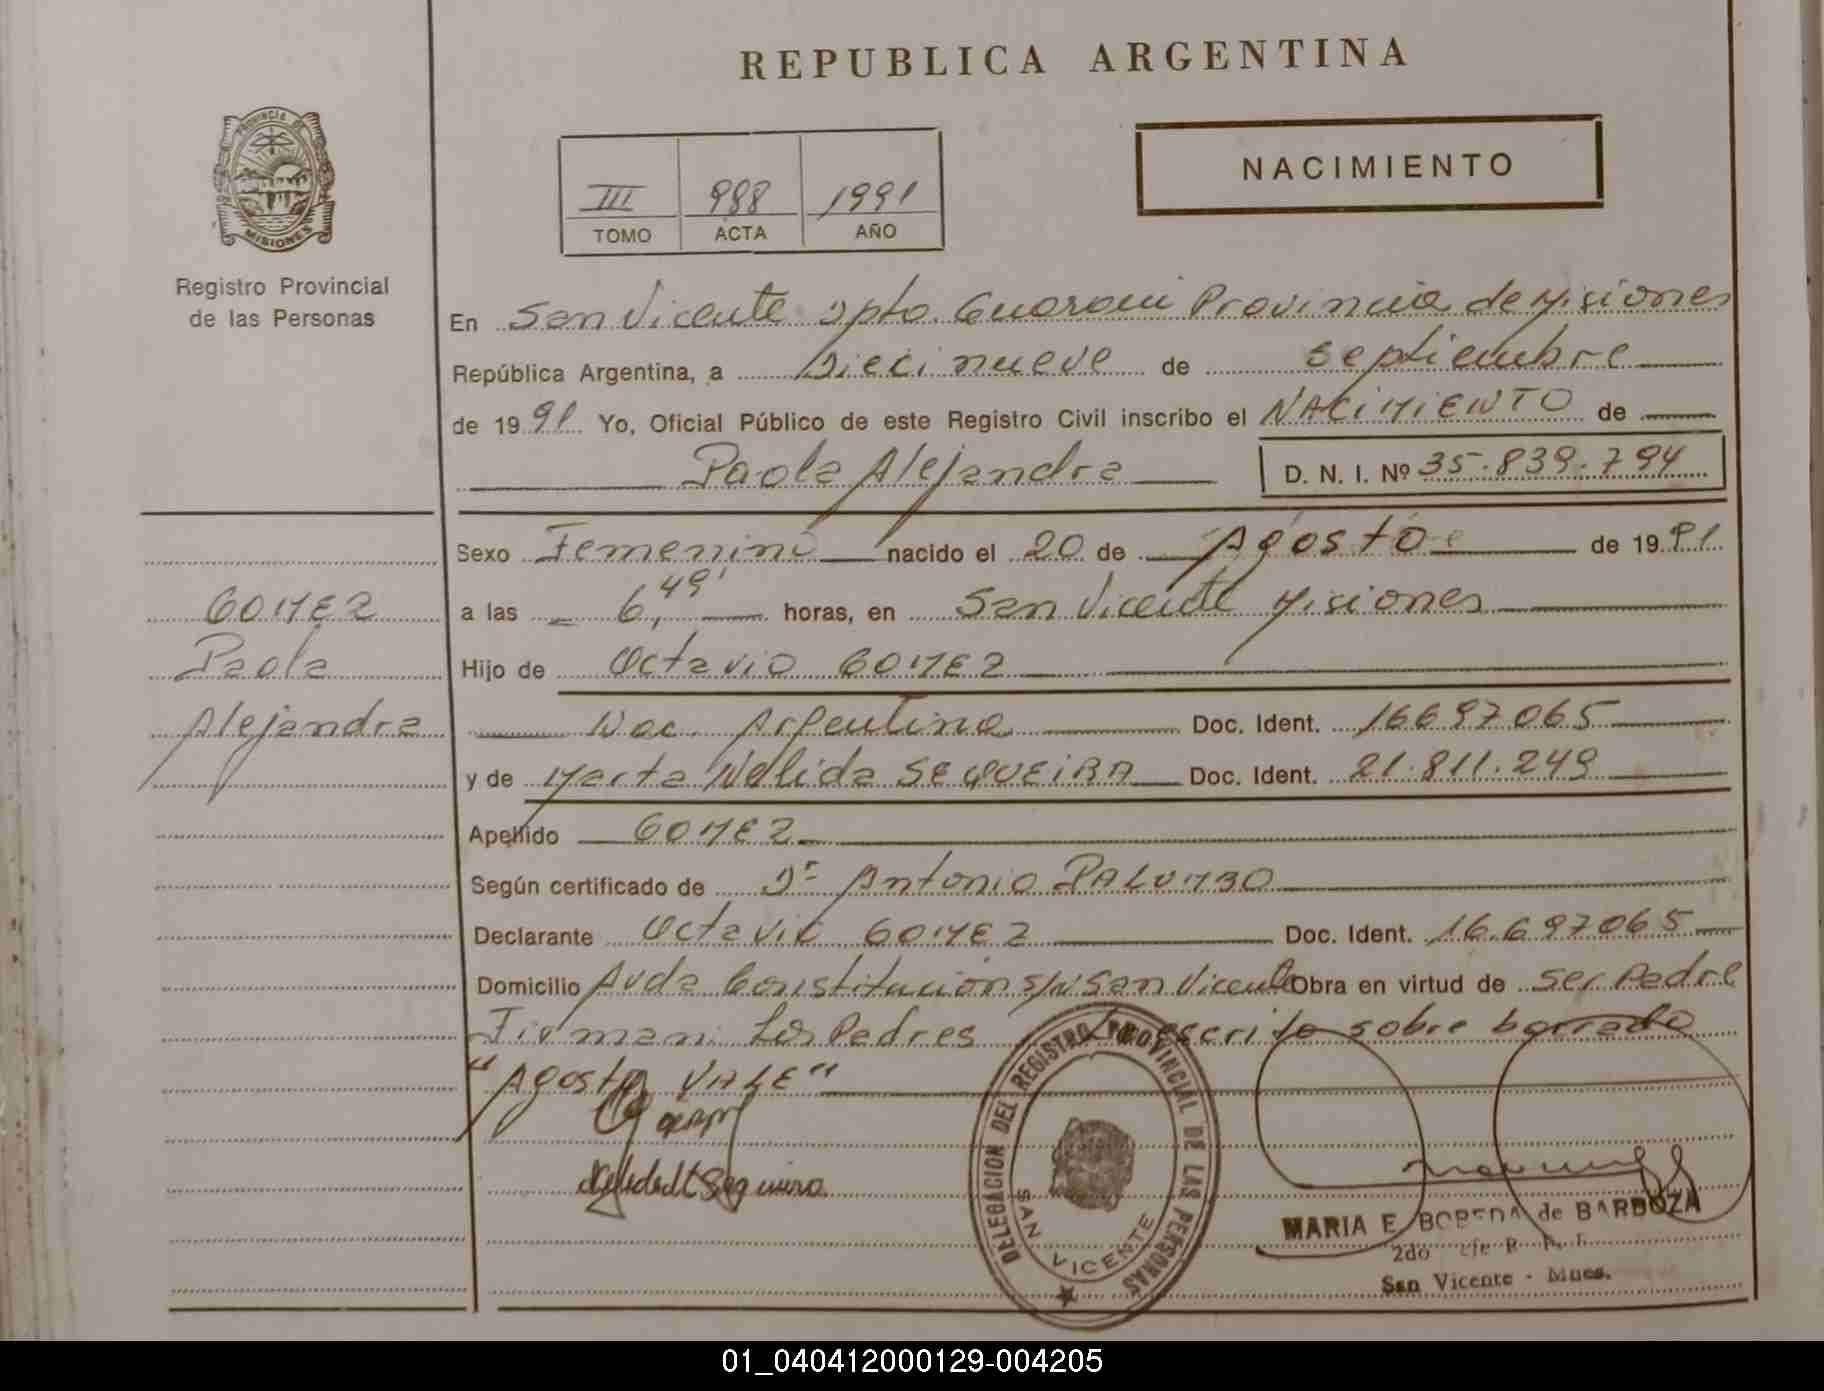 REPUBLICA ARGENTINA
PROVINCIA DE
MISIONES
Registro Provincial
de las Personas
NACIMIENTO
III 988 1991
TOMO ACTA AÑO
En San Vicente Dpto. Guarani Provincia de Misiones
República Argentina, a Diecinueve de Septiembre
de 1991 Yo, Oficial Público de este Registro Civil inscribo el NACIMIENTO de
Paola Alejandra D. N. I. Nº 35.839.794
GOMEZ
Paola
Alejandra
Sexo Femenino nacido el 20 de Agosto de 1991
a las 6,49' horas, en San Vicente Misiones
Hijo de Octavio GOMEZ
Nac. Argentina Doc. Ident. 16697065
y de Marta Nelida SEQUEIRA Doc. Ident. 21.811.249
Apellido GOMEZ
Según certificado de Dr Antonio PALUMBO
Declarante Octavio GOMEZ Doc. Ident. 16.697065
Domicilio Avda Constitucion S/N San Vicente Obra en virtud de ser Padre
Firman Los Padres Lo escrito sobre borrado
"Agosto VALE"
DELEGACION DEL REGISTRO PROVINCIAL DE LAS PERSONAS
SAN VICENTE
MARIA E. BOBEDA de BARBOZA
2do
San Vicente - Mnes.
01_040412000129-004205